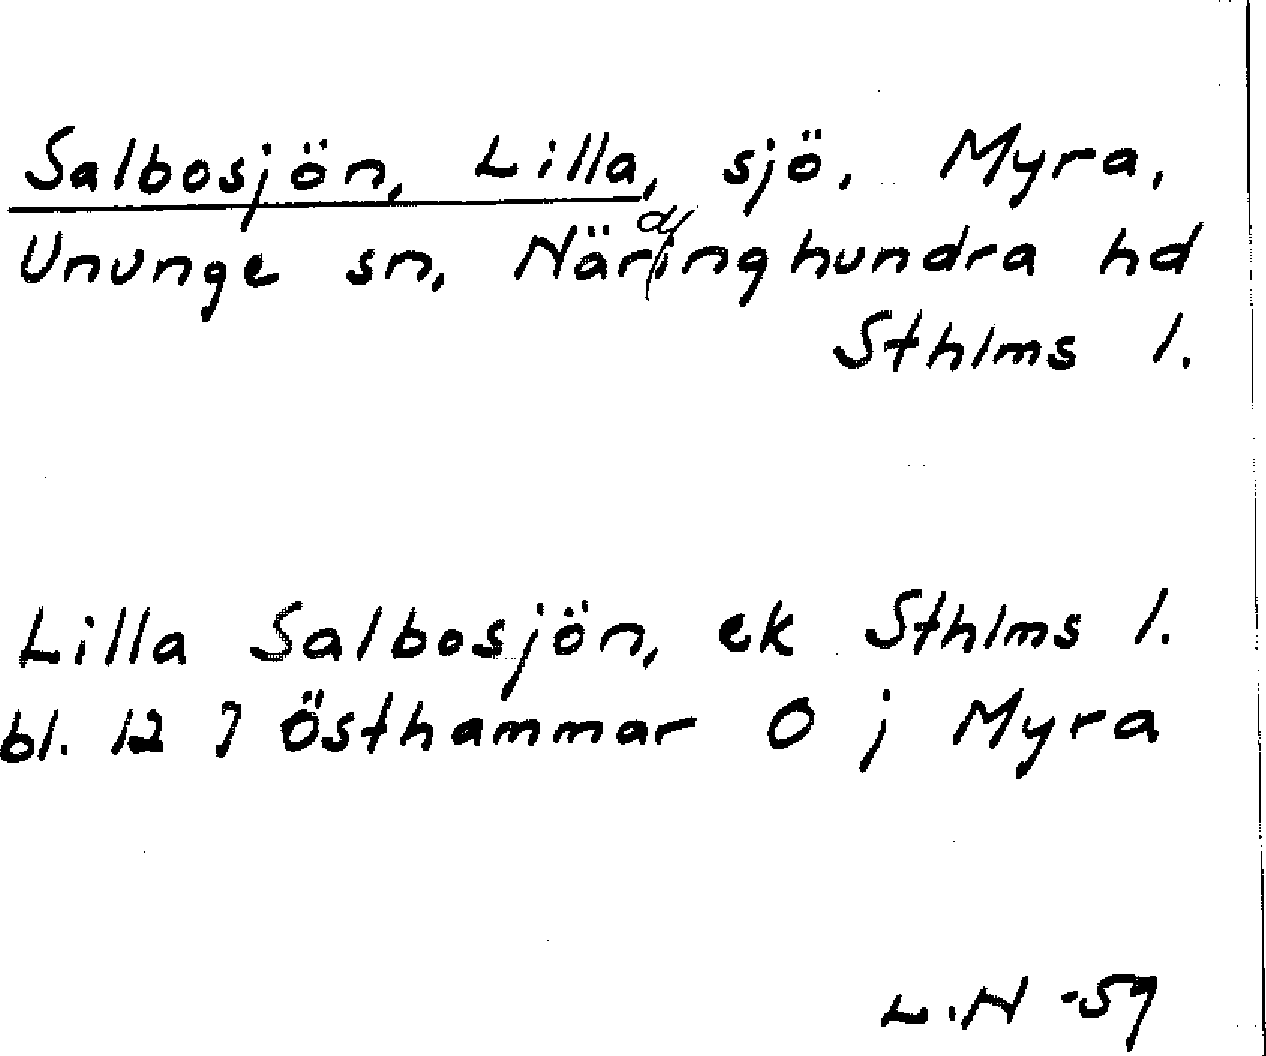 Salbosjön, Lilla, sjö, Myra,
Ununge sn, Närdinghundra hd
Sthlms l.
Lilla Salbosjön, ek Sthlms l.
bl. 12 7 Östhammar O j Myra
L.N -59